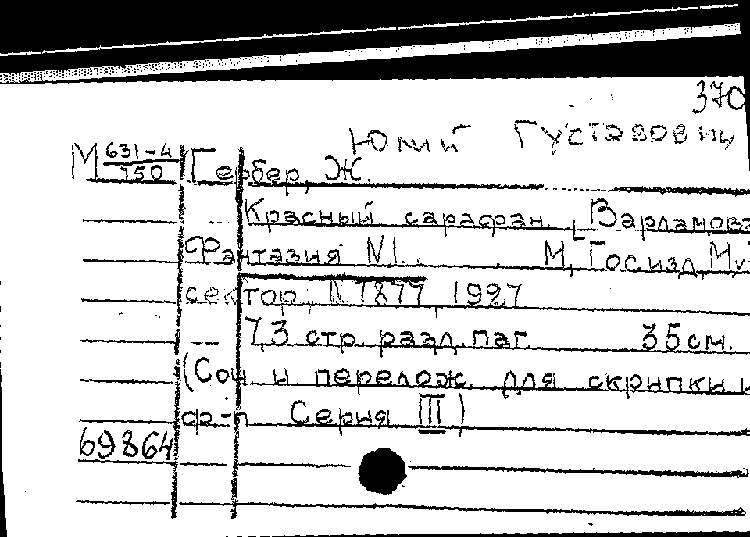 370
Юлий Густавович
М 631-4/750 Гербер, Ж.
Красный сарафан. [Варламова
Фантазия №1. М, Гос.изд, Му
сектор, N7877, 1927
7,3 стр. разд. паг. 35см.
(Соч. и перелож. для скрипки и
ф-п Серия III)
69864